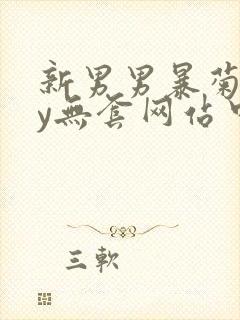 新男男暴菊
y無套网佔
三軟